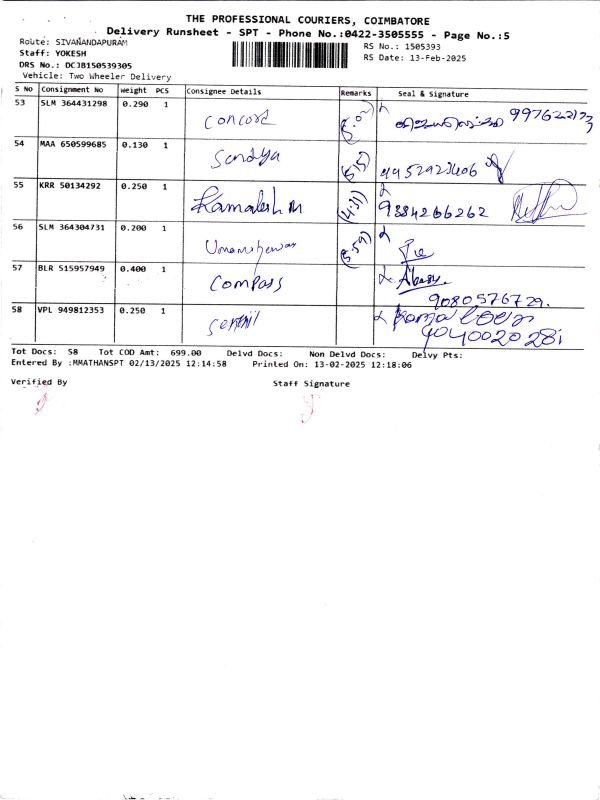 THE PROFESSIONAL COURIERS, COIMBATORE
Delivery Runsheet - SPT - Phone No.:0422-3505555 - Page No.:5
Route: SIVANANDAPURAM
Staff: YOKESH
DRS No.: DCJB150539305
Vehicle: Two Wheeler Delivery
RS No.: 1505393
RS Date: 13-Feb-2025
S No Consignment No Weight PCS Consignee Details Remarks Seal & Signature
53 SLM 364431298 0.290 1 Concord
54 MAA 650599685 0.130 1 Sandya
55 KRR 50134292 0.250 1 Kamalesh M (4:31) 9384266262
56 SLM 364304731 0.200 1 (3:59)
57 BLR 515957949 0.400 1 Compass 9080576729.
58 VPL 949812353 0.250 1 Senthil
Tot Docs: 58 Tot COD Amt: 699.00 Delvd Docs: Non Delvd Docs: Delvy Pts:
Entered By :MMATHANSPT 02/13/2025 12:14:58 Printed On: 13-02-2025 12:18:06
Verified By Staff Signature